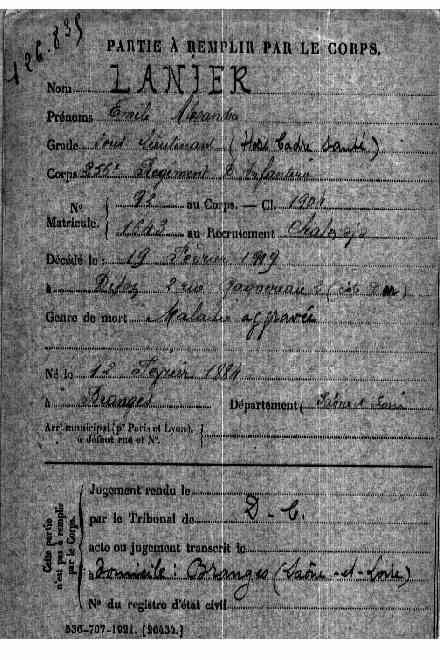 126.835
PARTIE À REMPLIR PAR LE CORPS.
Nom LANIER
Prénoms Emile Alexandre
Grade Sous Lieutenant (Hors Cadre Santé)
Corps 355e Régiment d'Infanterie
N° 92 au Corps. — Cl. 1904
Matricule. 1042 au Recrutement
Décédé le 19 Février 1919
à 2 rue (Côte d'Or)
Genre de mort Maladie aggravée
Né le 12 Février 1884
à Branges Département Saône et Loire
Arr. municipal (pr Paris et Lyon),
à défaut rue et N°.
Cette partie
n'est pas à remplir
par le Corps.
Jugement rendu le
par le Tribunal de D - C.
acte ou jugement transcrit le
à Domicile : Branges (Saône-et-Loire)
N° du registre d'état civil
536-707-1921. [26434.]